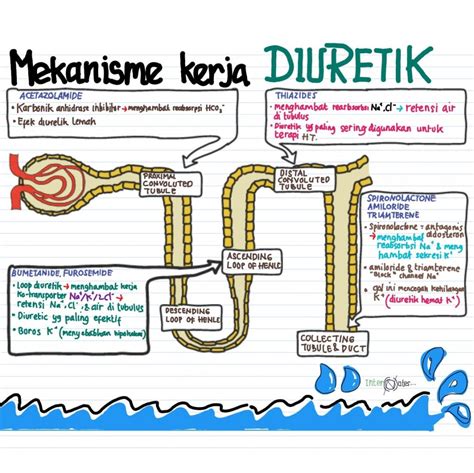 Mekanisme kerja DIURETIK
ACETAZOLAMIDE
• Karbonik anhidrase inhibitor → menghambat reabsorpsi HCO3-
• Efek diuretik lemah
THIAZIDES
• menghambat rearbsorbsi Na+, Cl- → retensi air
di tubulus
• Diuretik yg paling sering digunakan untuk
terapi HT.
PROXIMAL
CONVOLUTED
TUBULE
DISTAL
CONVOLUTED
TUBULE
SPIRONOLACTONE
AMILORIDE
TRIAMTERENE
• Spironolactone = antagonis
aldosteron
→ menghambat
reabsorbsi Na+ & meng
hambat sekresi K+
• amiloride & triamterene
"block" channel Na+
• gol ini mencegah kehilangan
K+ (diuretik hemat K+)
ASCENDING
LOOP OF HENLE
BUMETANIDE, FUROSEMIDE
• Loop diuretik → menghambat kerja
Ko-transporter Na+/K+/2Cl- →
retensi Na+, Cl-, & air di tubulus
• Diuretic yg paling efektif
• Boros K+ (menyebabkan hipokalemi)
DESCENDING
LOOP OF HENLE
COLLECTING
TUBULE & DUCT